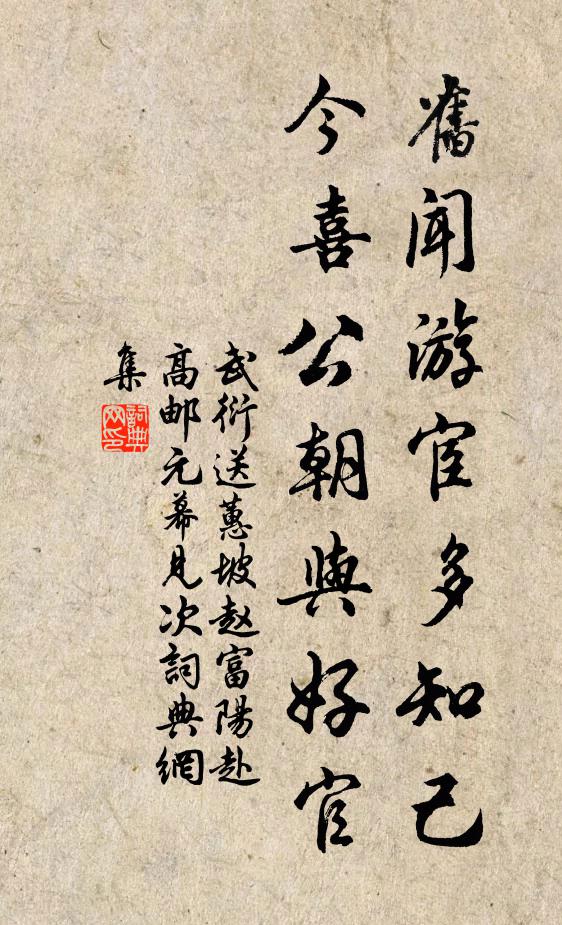 舊闻游宦多知己
今喜公朝與好官
武衍送蕙坡赵富陽赴
高邮元幕見次詞典網
集
詞典
网印